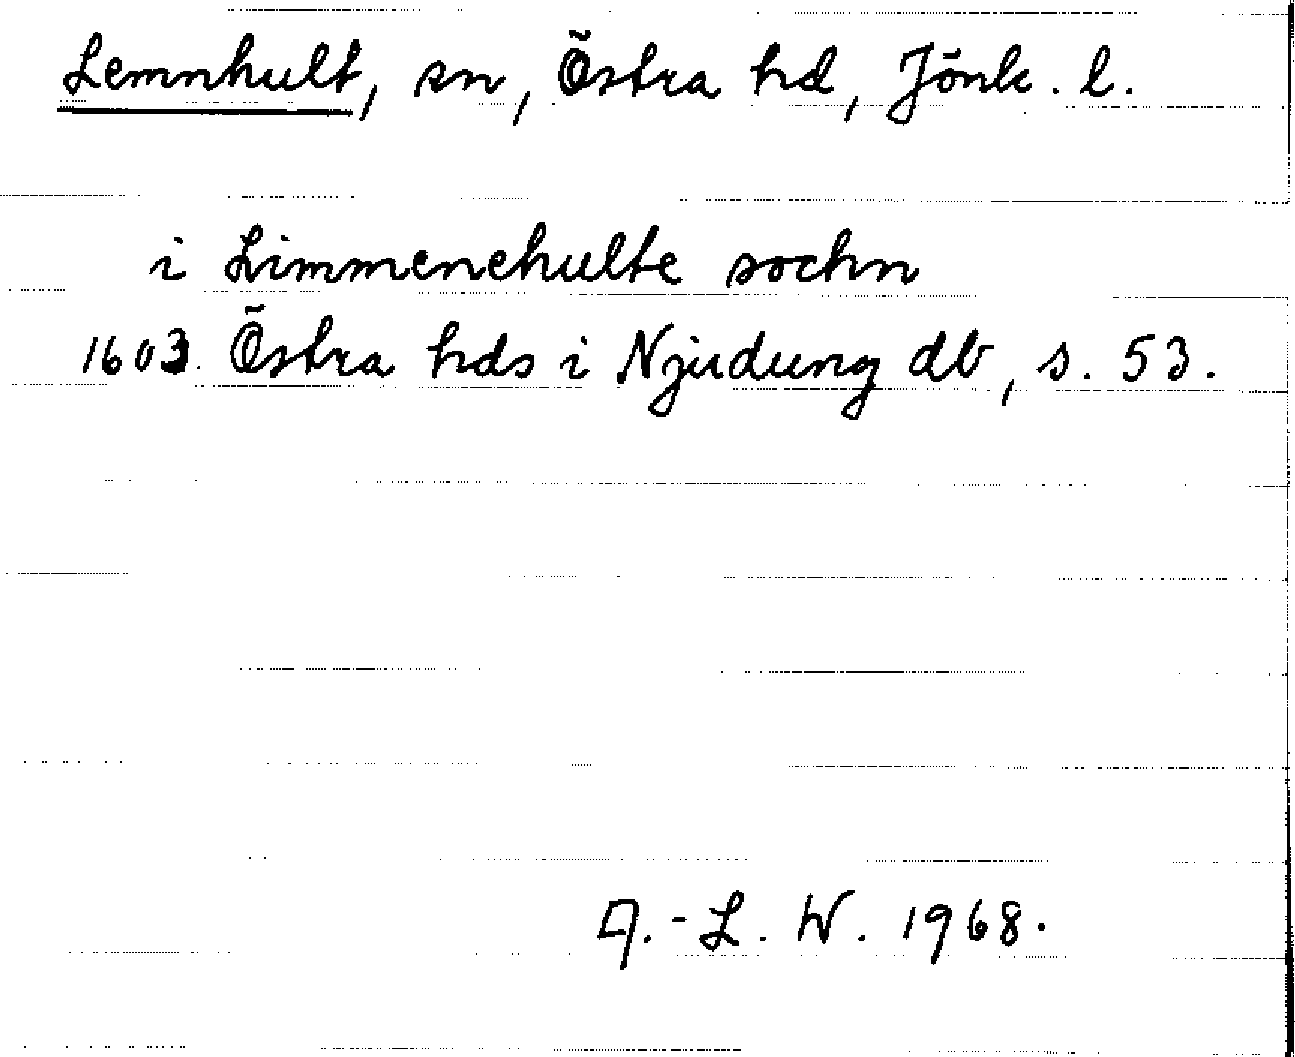 Lemnhult, sn, Östra hd, Jönk. l.
i Limmenehulte sochn
1603. Östra hds i Njudung db, s. 53.
A.-L. W. 1968.